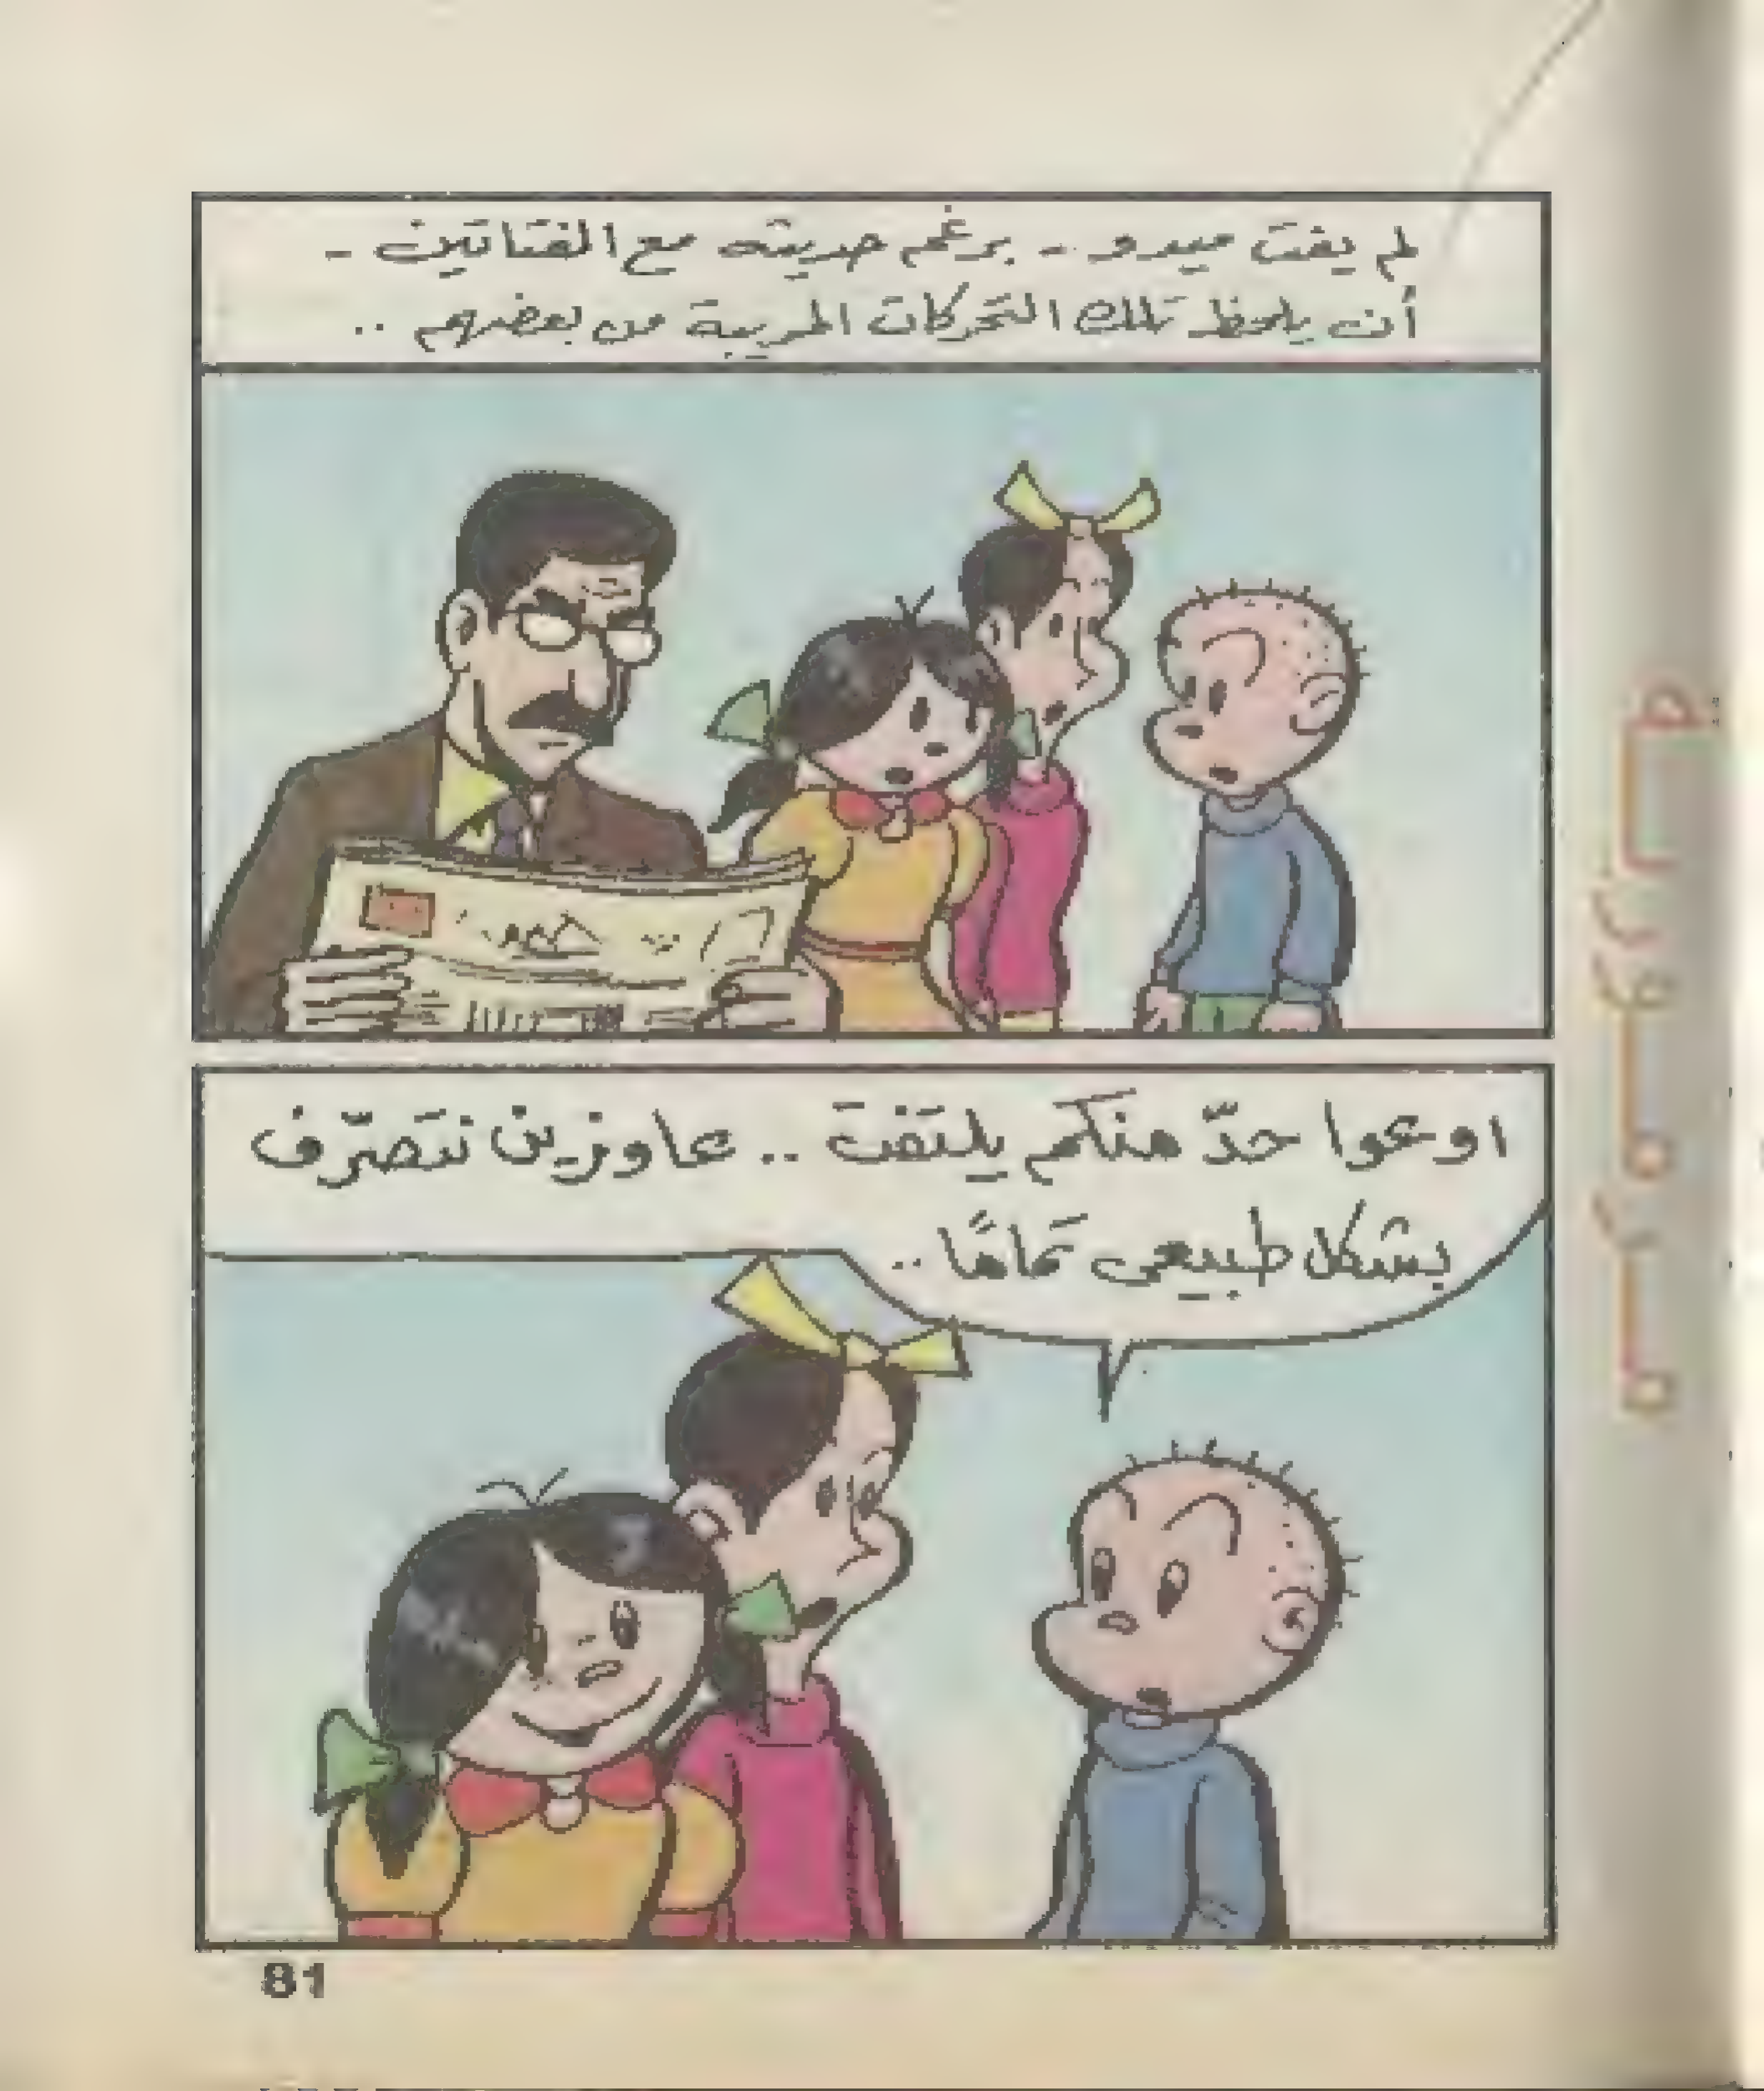 لم يفت ميدو - برغم حديثه مع الفتاتين -
أن يلحظ تلك التحركات المريبة من بعضهم ..
اوعوا حدّ منكم يلتفت .. عاوزين نتصرّف
بشكل طبيعى تمامًا ..
81